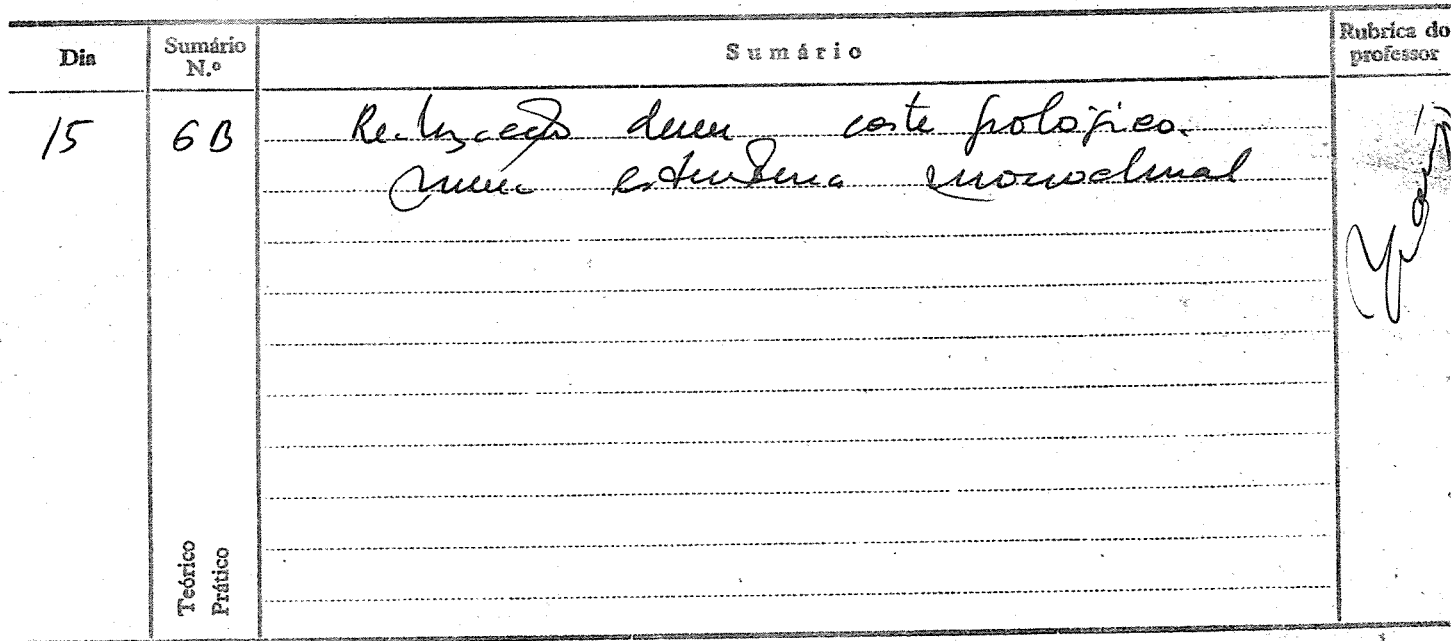 Dia
Sumário N.º
Sumário
Rubrica do professor
15
6B
Realização de um corte geológico
numa estrutura monoclinal
Teórico
Prático